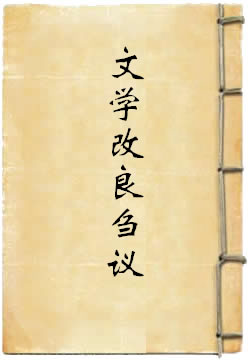 文学改良刍议